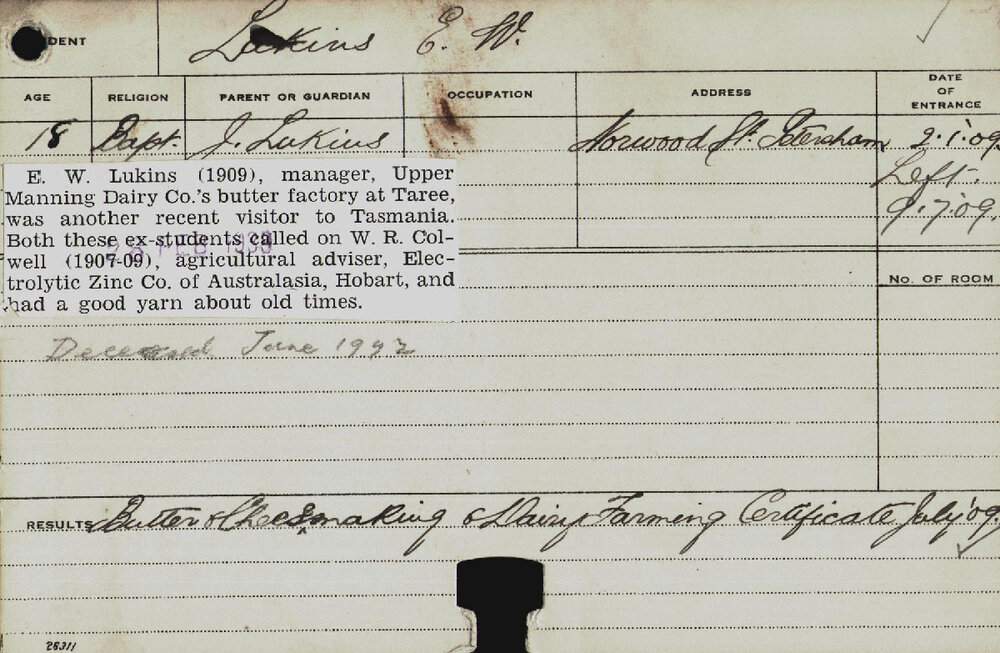 DENT
Lukins E. W.
AGE RELIGION PARENT OR GUARDIAN OCCUPATION ADDRESS DATE OF ENTRANCE
18 Bapt. J. Lukins Norwood St. Petersham 2.1.09
Left
9.7.09
E. W. Lukins (1909), manager, Upper
Manning Dairy Co.'s butter factory at Taree,
was another recent visitor to Tasmania.
Both these ex-students called on W. R. Col-
well (1907-09), agricultural adviser, Elec-
trolytic Zinc Co. of Australasia, Hobart, and
had a good yarn about old times.
No. OF ROOM
Deceased June 1992
RESULTS Butter & Cheesemaking & Dairy Farming Certificate July '09
26311